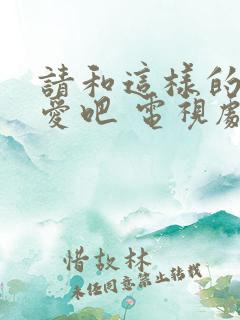 請和這樣的
愛吧 電視劇
惜故林
未經同意禁止轉載